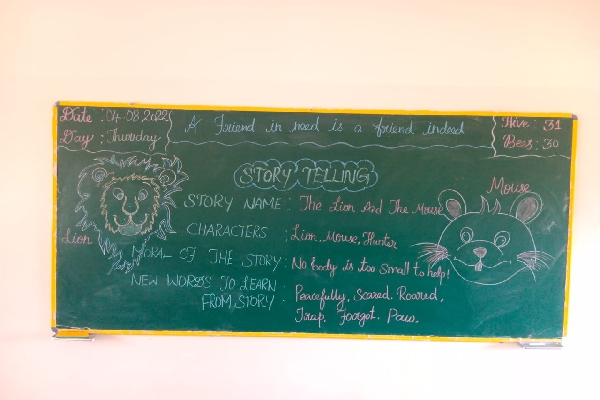 Date : 04-08-2022
Day : Thursday
A Friend in need is a friend indeed
Hive : 31
Bees : 30
STORY TELLING
STORY NAME : The Lion And The Mouse
CHARACTERS : Lion, Mouse, Hunter
MORAL OF THE STORY : No body is too small to help!
NEW WORDS TO LEARN
FROM STORY : Peacefully, Scared, Roared,
Trap, Forgot, Paw.
Lion
Mouse